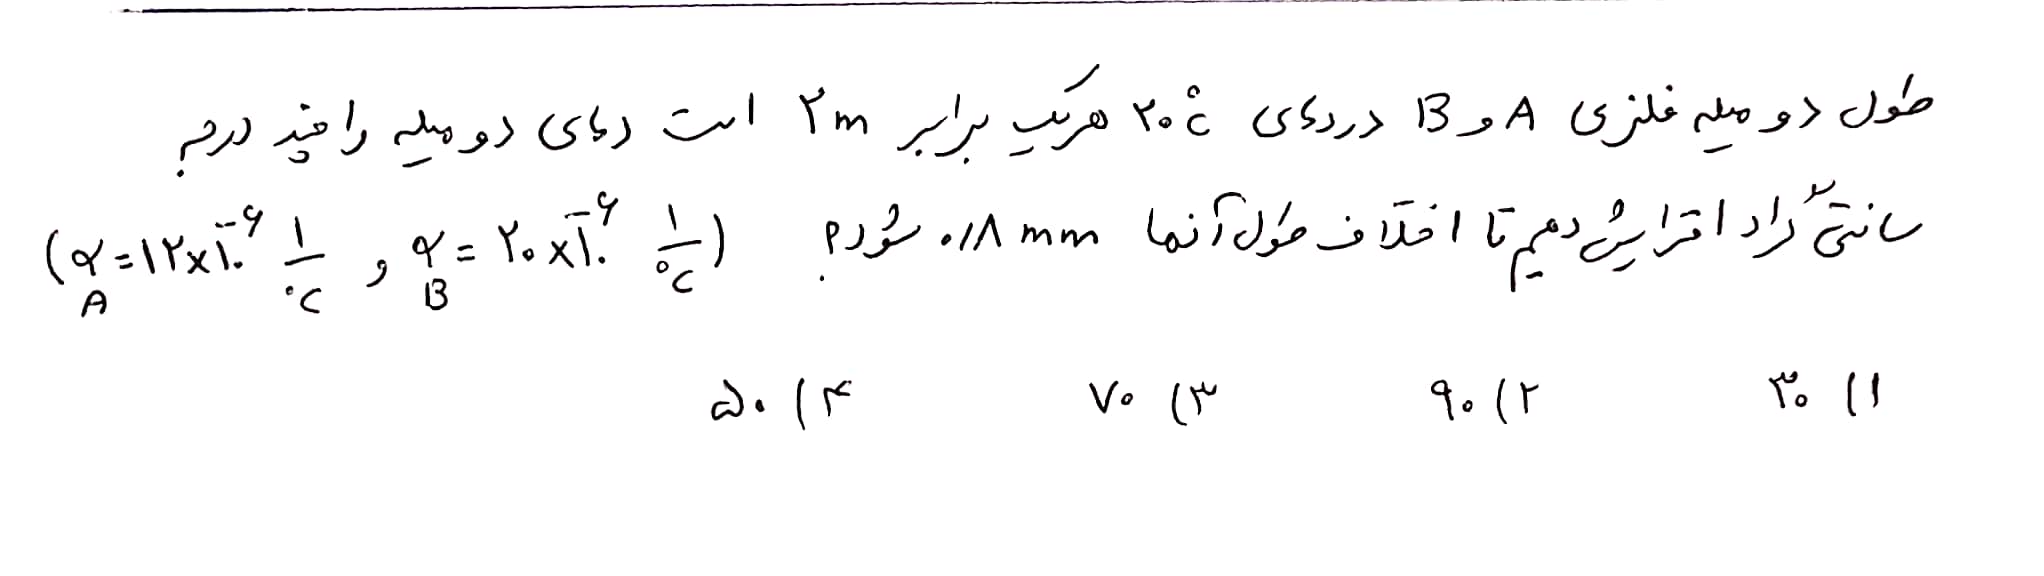 طول دو میله فلزی A و B در دمای ۲۰°C هریک برابر ۲m است دمای دو میله را چند درجه
سانتی گراد افزایش دهیم تا اختلاف طول آنها ۰/۸ mm شود؟ (α_A = ۱۲×۱۰^-۶ ۱/°C و α_B = ۲۰×۱۰^-۶ ۱/°C)
۱) ۳۰ ۲) ۹۰ ۳) ۷۰ ۴) ۵۰